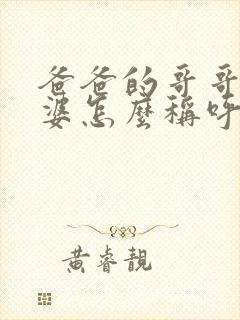 爸爸的哥哥
婆怎麼稱呼
黃睿靚